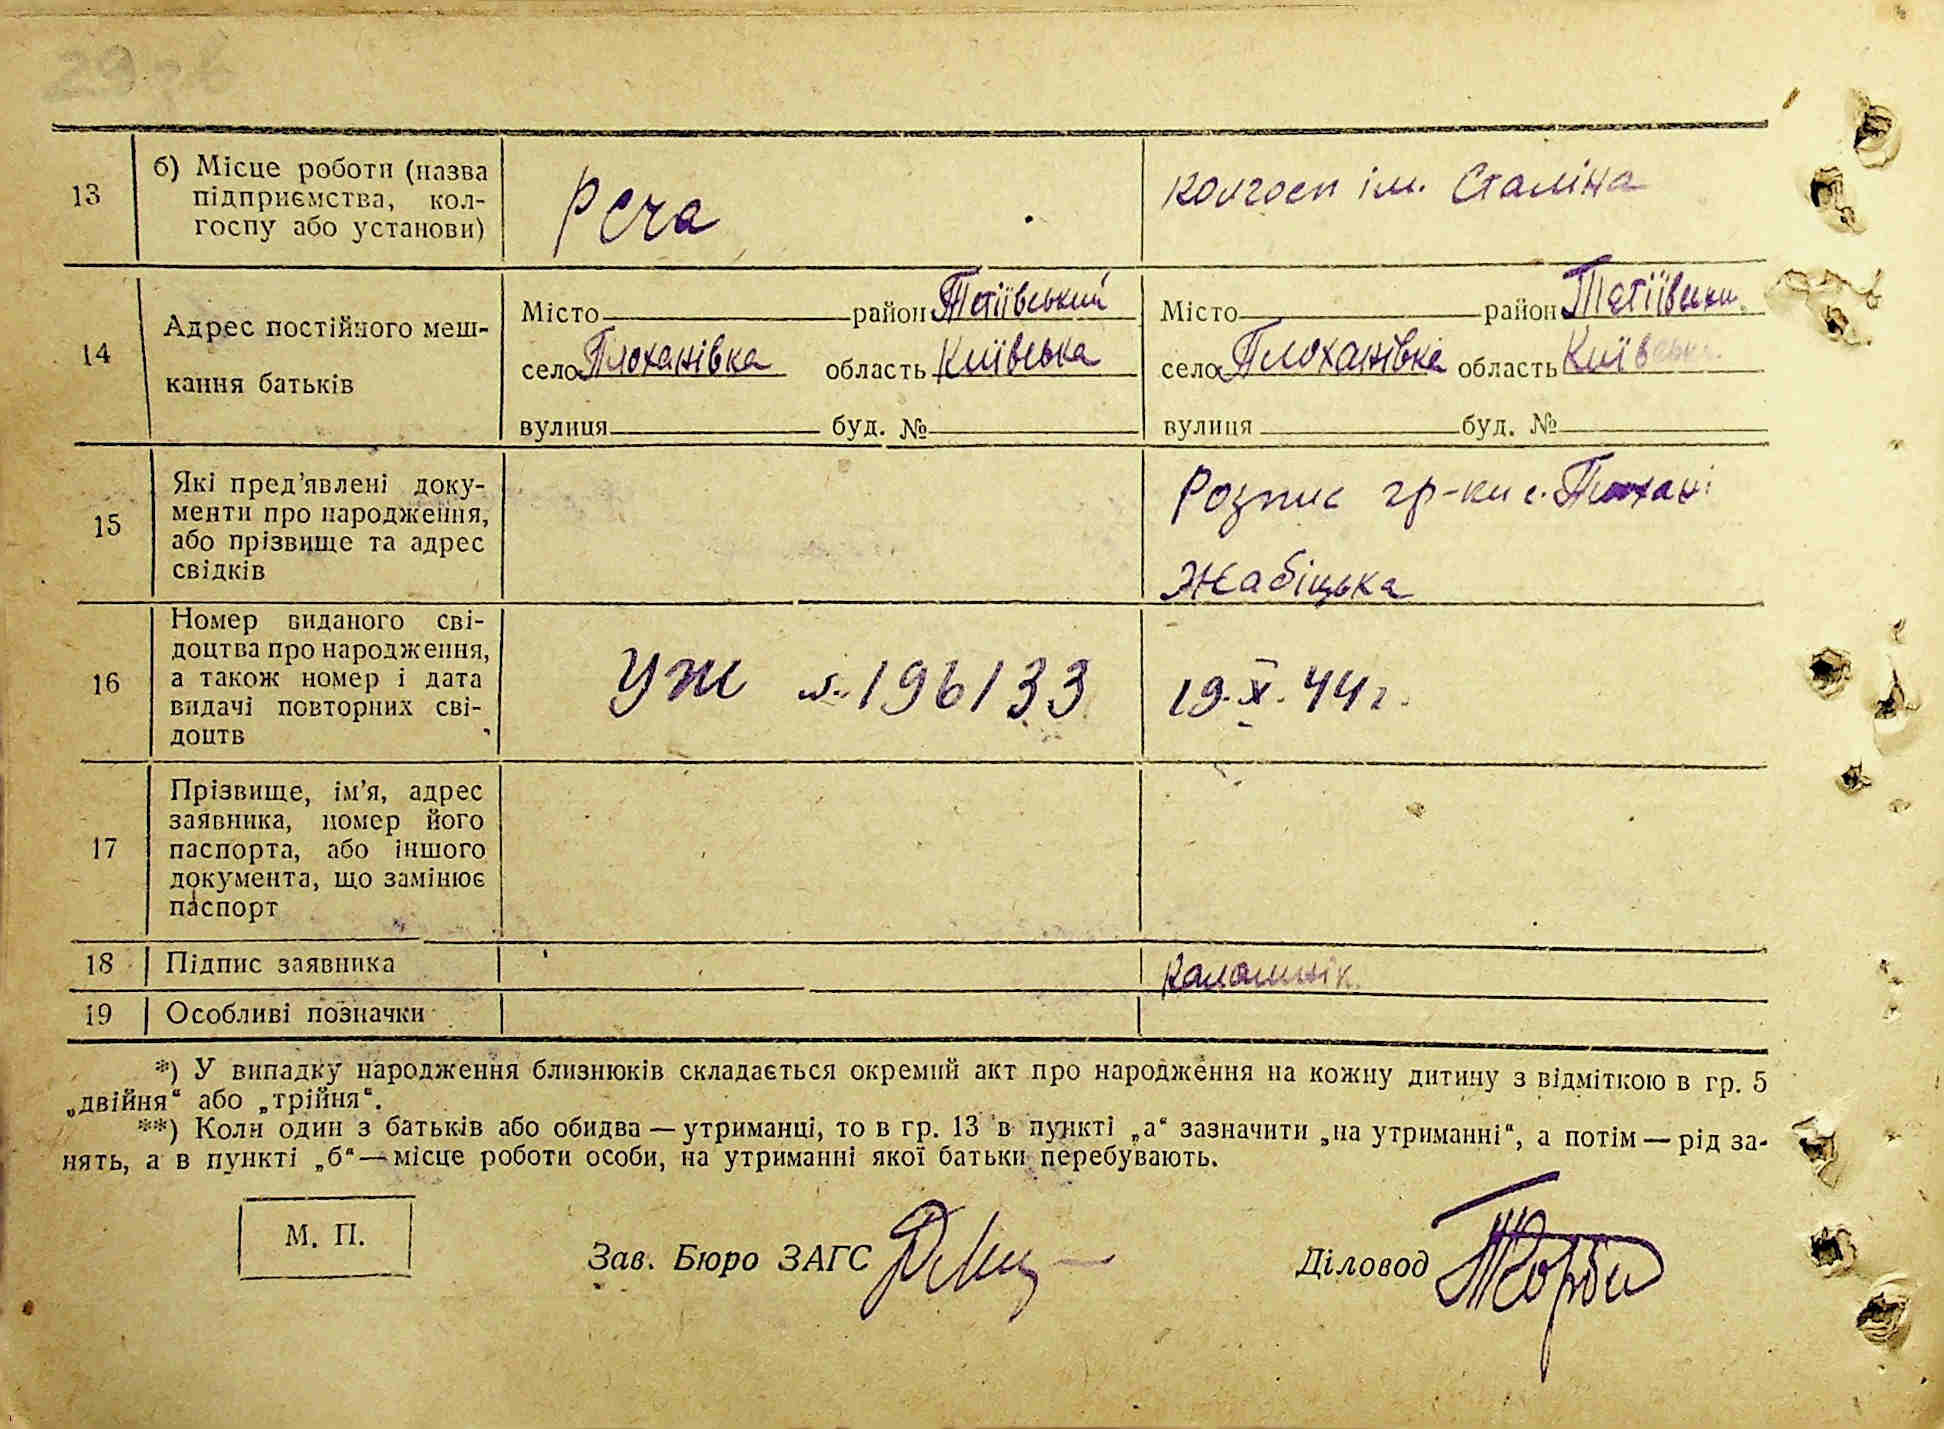 13
б) Місце роботи (назва
підприємства, кол-
госпу або установи)
РСЧА
колгосп ім. Сталіна
14
Адрес постійного меш-
кання батьків
Місто район Тетіївський
село Плоханівка область Київська
вулиця буд. №
Місто район Тетіївськи.
село Плоханівка область Київська.
вулиця буд. №
15
Які пред’явлені доку-
менти про народження,
або прізвище та адрес
свідків
Розпис гр-ки с.
Жабіцька
16
Номер виданого сві-
доцтва про народження,
а також номер і дата
видачі повторних сві-
доцтв
УЖ №196133
19.X.44г.
17
Прізвище, ім’я, адрес
заявника, номер його
паспорта, або іншого
документа, що замінює
паспорт
18
Підпис заявника
Калашнік
19
Особливі позначки
*) У випадку народження близнюків складається окремий акт про народження на кожну дитину з відміткою в гр. 5
„двійня“ або „трійня“.
**) Коли один з батьків або обидва — утриманці, то в гр. 13 в пункті „а“ зазначити „на утриманні“, а потім — рід за-
нять, а в пункті „б“ — місце роботи особи, на утриманні якої батьки перебувають.
М. П.
Зав. Бюро ЗАГС
Діловод